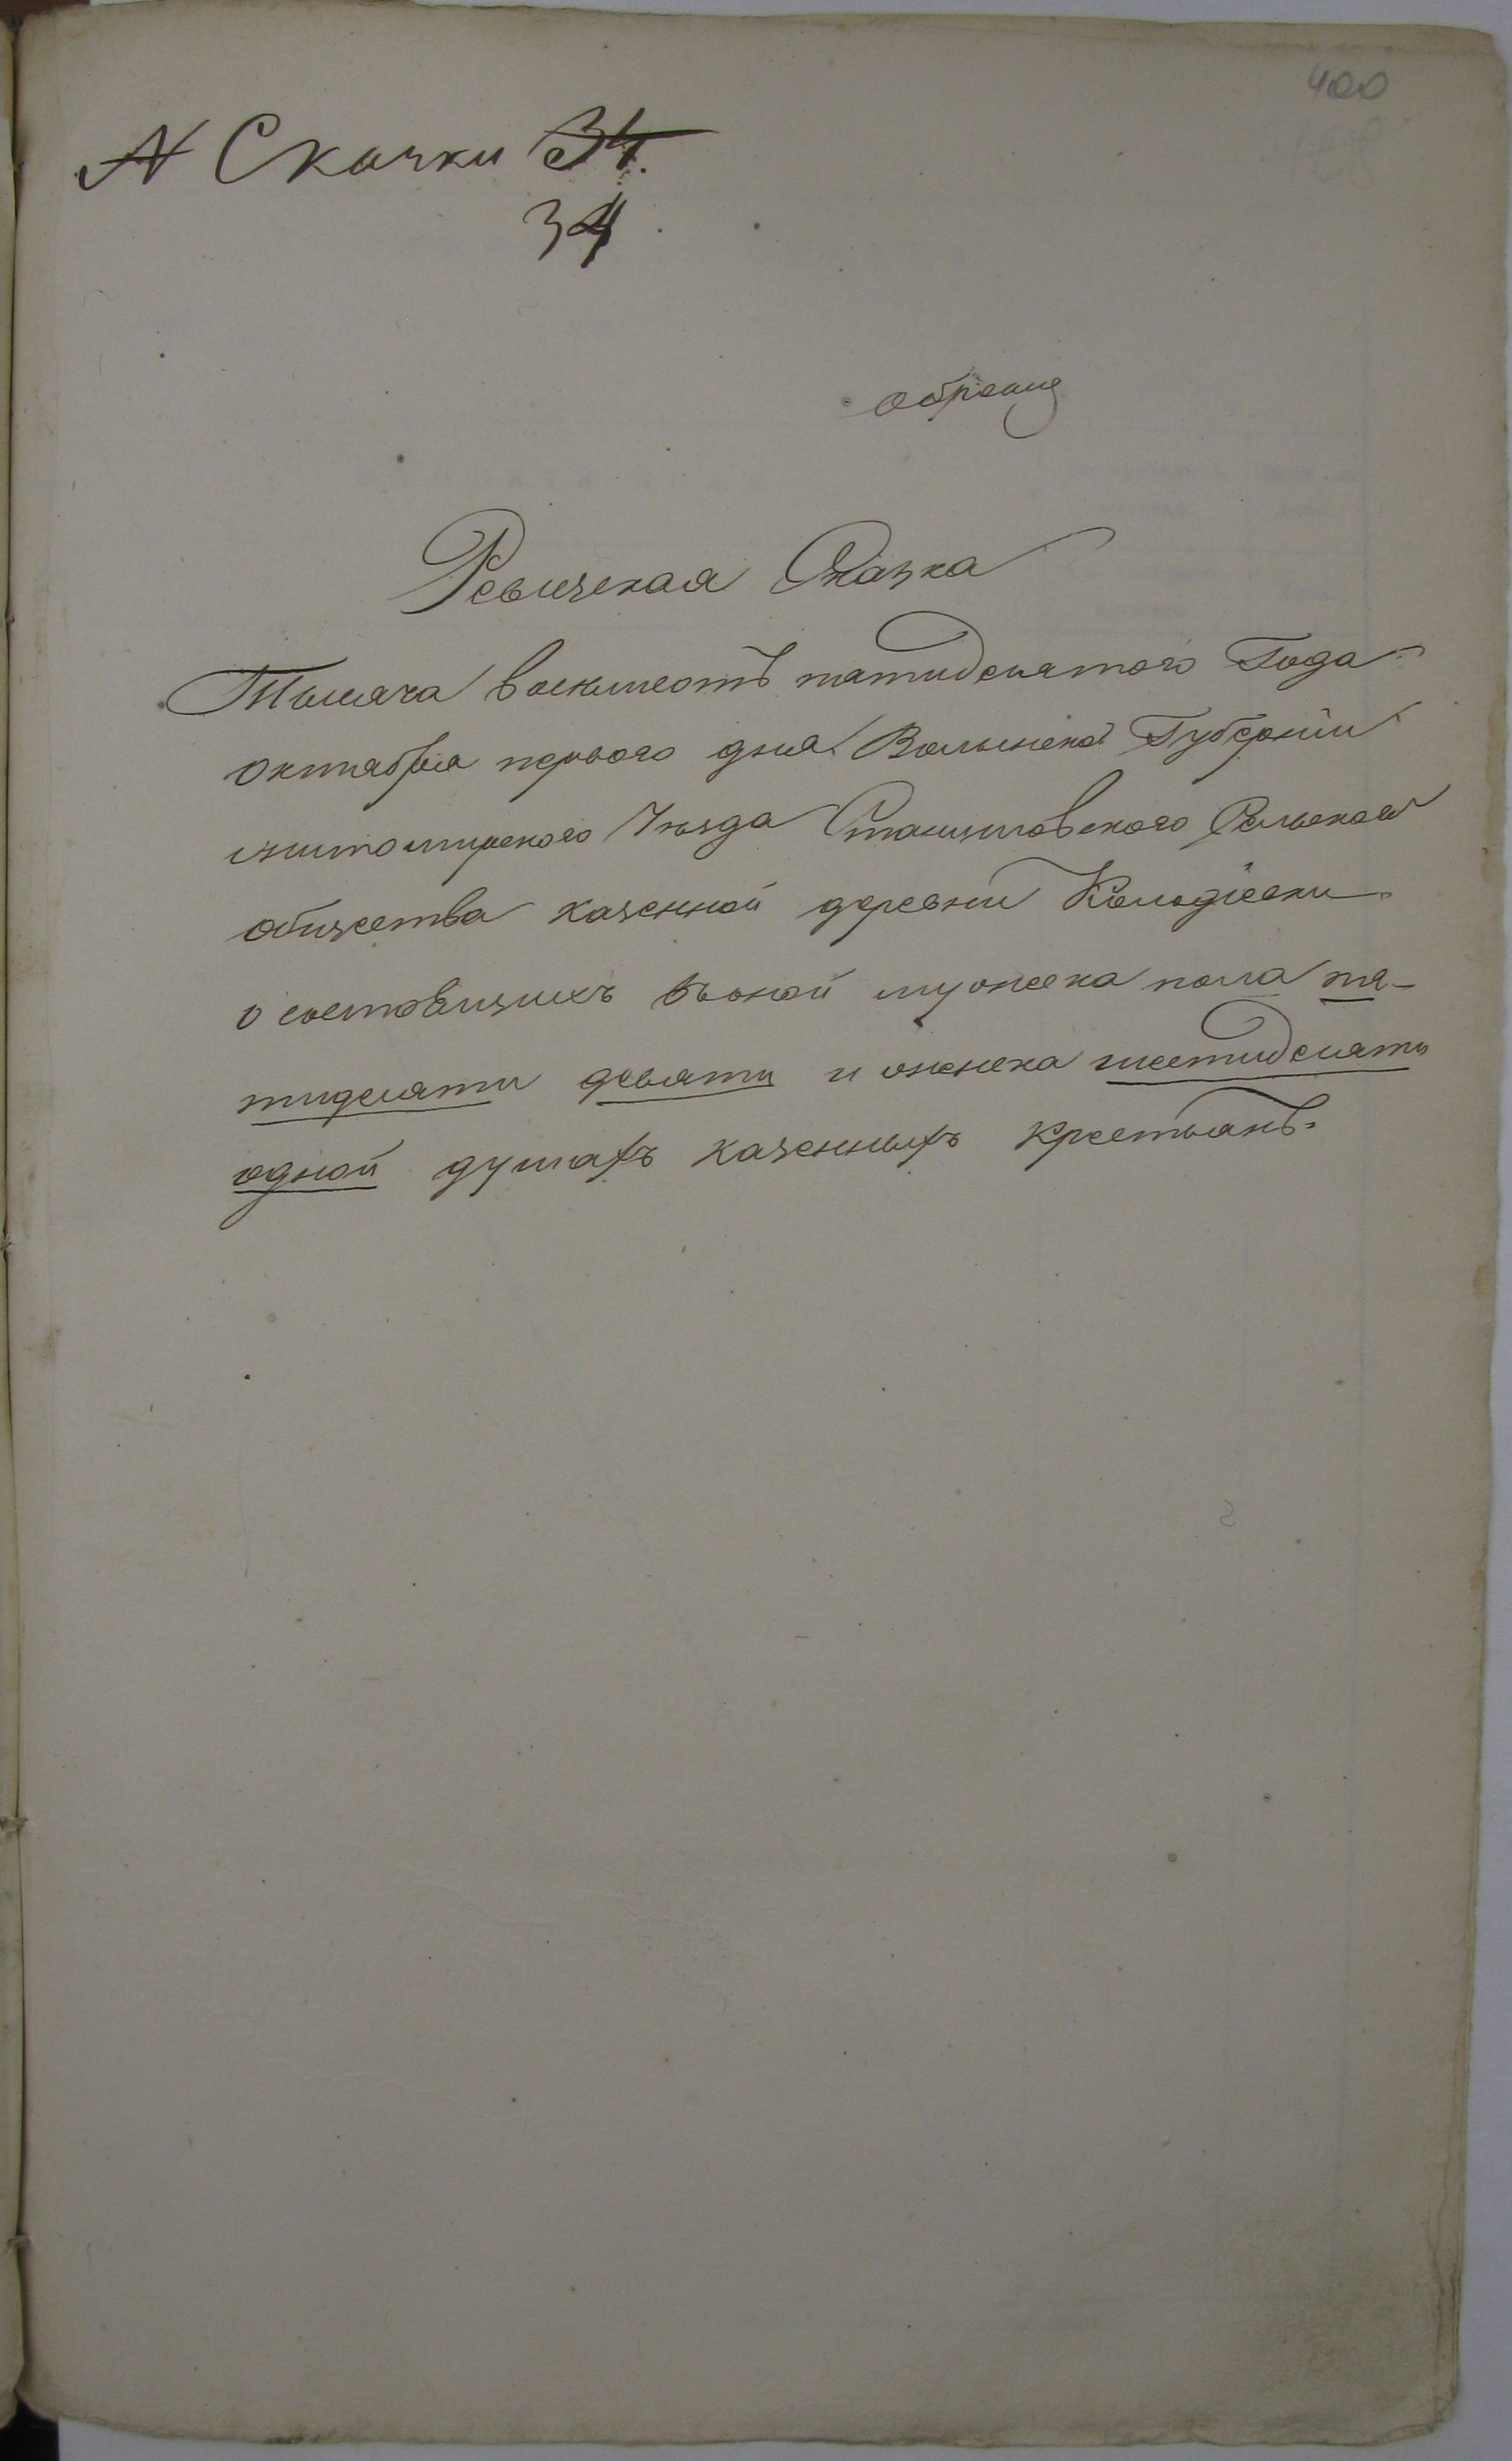 400
N Скачки 34.
34.
Ревизская Сказка
Тысяча восемьсотъ пятидесятого Года
октября первого дня Волынской Губерніи
житомирского Уезда Сельского
общества казенной деревни
о состоящихъ въ оной мужеска пола пя-
тидесяти девяти и женска шестидесяти
одной душахъ казенныхъ крестьянъ.